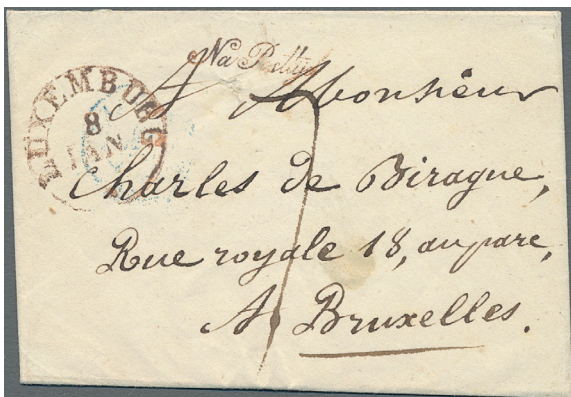 LUXEMBURG
8
JAN
Na Posttyd
A Monsieur
Charles de Birague,
Rue royale 18, au parc,
A Bruxelles.